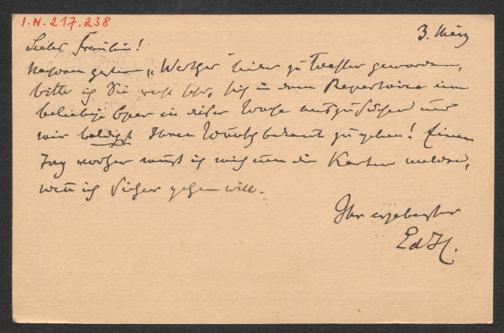 I.N. 217.238
3. März
Liebes Fräulein!
Nachdem gestern „Werther" leider zu Wasser geworden,
bitte ich Sie sich in dem Repertoire eine
beliebige Oper in dieser Woche auszusuchen und
mir baldigst Ihren Wunsch bekannt zu geben! Einen
Tag vorher muß ich mich um die Karten melden,
wenn ich sicher gehen will.
Ihr ergebenster
Ed H.